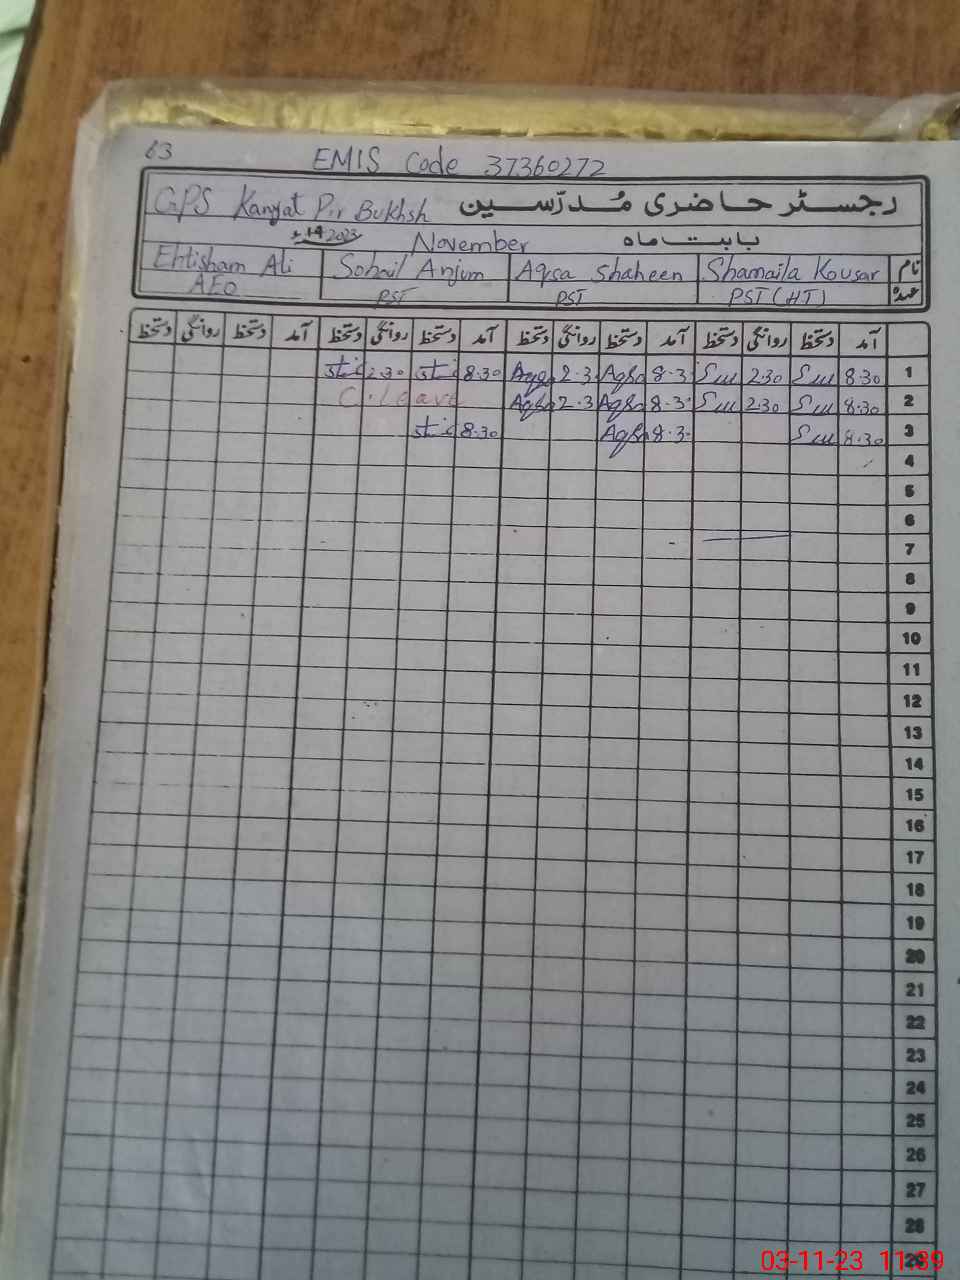 63
EMIS Code 37360272
GPS Kanyat Pir Bukhsh رجسٹر حاضری مُدرّسین
2023ء November بابت ماہ
Ehtisham Ali Sohail Anjum Aqsa Shaheen Shamaila Kousar نام
AEO PST PST PST (HT) عہدہ
آمد دستخط روانگی دستخط آمد دستخط روانگی دستخط آمد دستخط روانگی دستخط آمد دستخط روانگی دستخط
1 8.30 Su 2.30 Su 8.3 Aqsa 2.3 Aqsa 8.30 2.30
2 8.30 Su 2.30 Su 8.3 Aqsa 2.3 Aqsa C. leave
3 8.30 Su 8.3 Aqsa 8.30
4
5
6
7
8
9
10
11
12
13
14
15
16
17
18
19
20
21
22
23
24
25
26
27
28
29
03-11-23 11:39